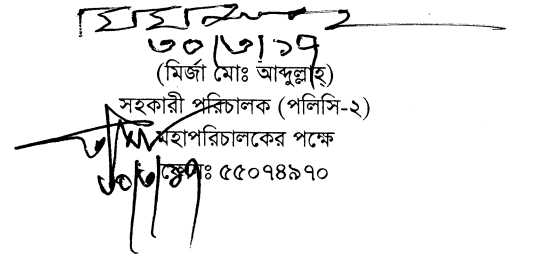 ৩০/৩/১৭
(মির্জা মোঃ আব্দুল্লাহ্)
সহকারী পরিচালক (পলিসি-২)
মহাপরিচালকের পক্ষে
ফোনঃ ৫৫০৭৪৯৭০
৩০/৩/১৭